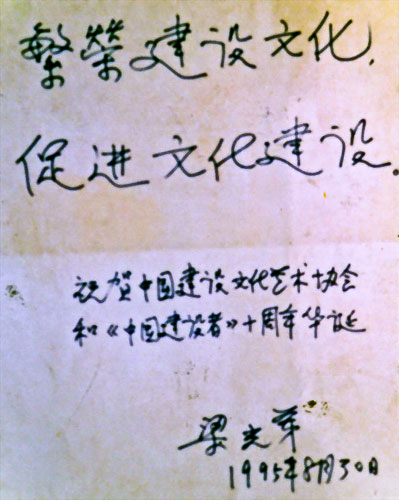 繁荣建设文化,
促进文化建设。
祝贺中国建设文化艺术协会
和《中国建设者》十周年华诞
梁光华
1995年8月30日